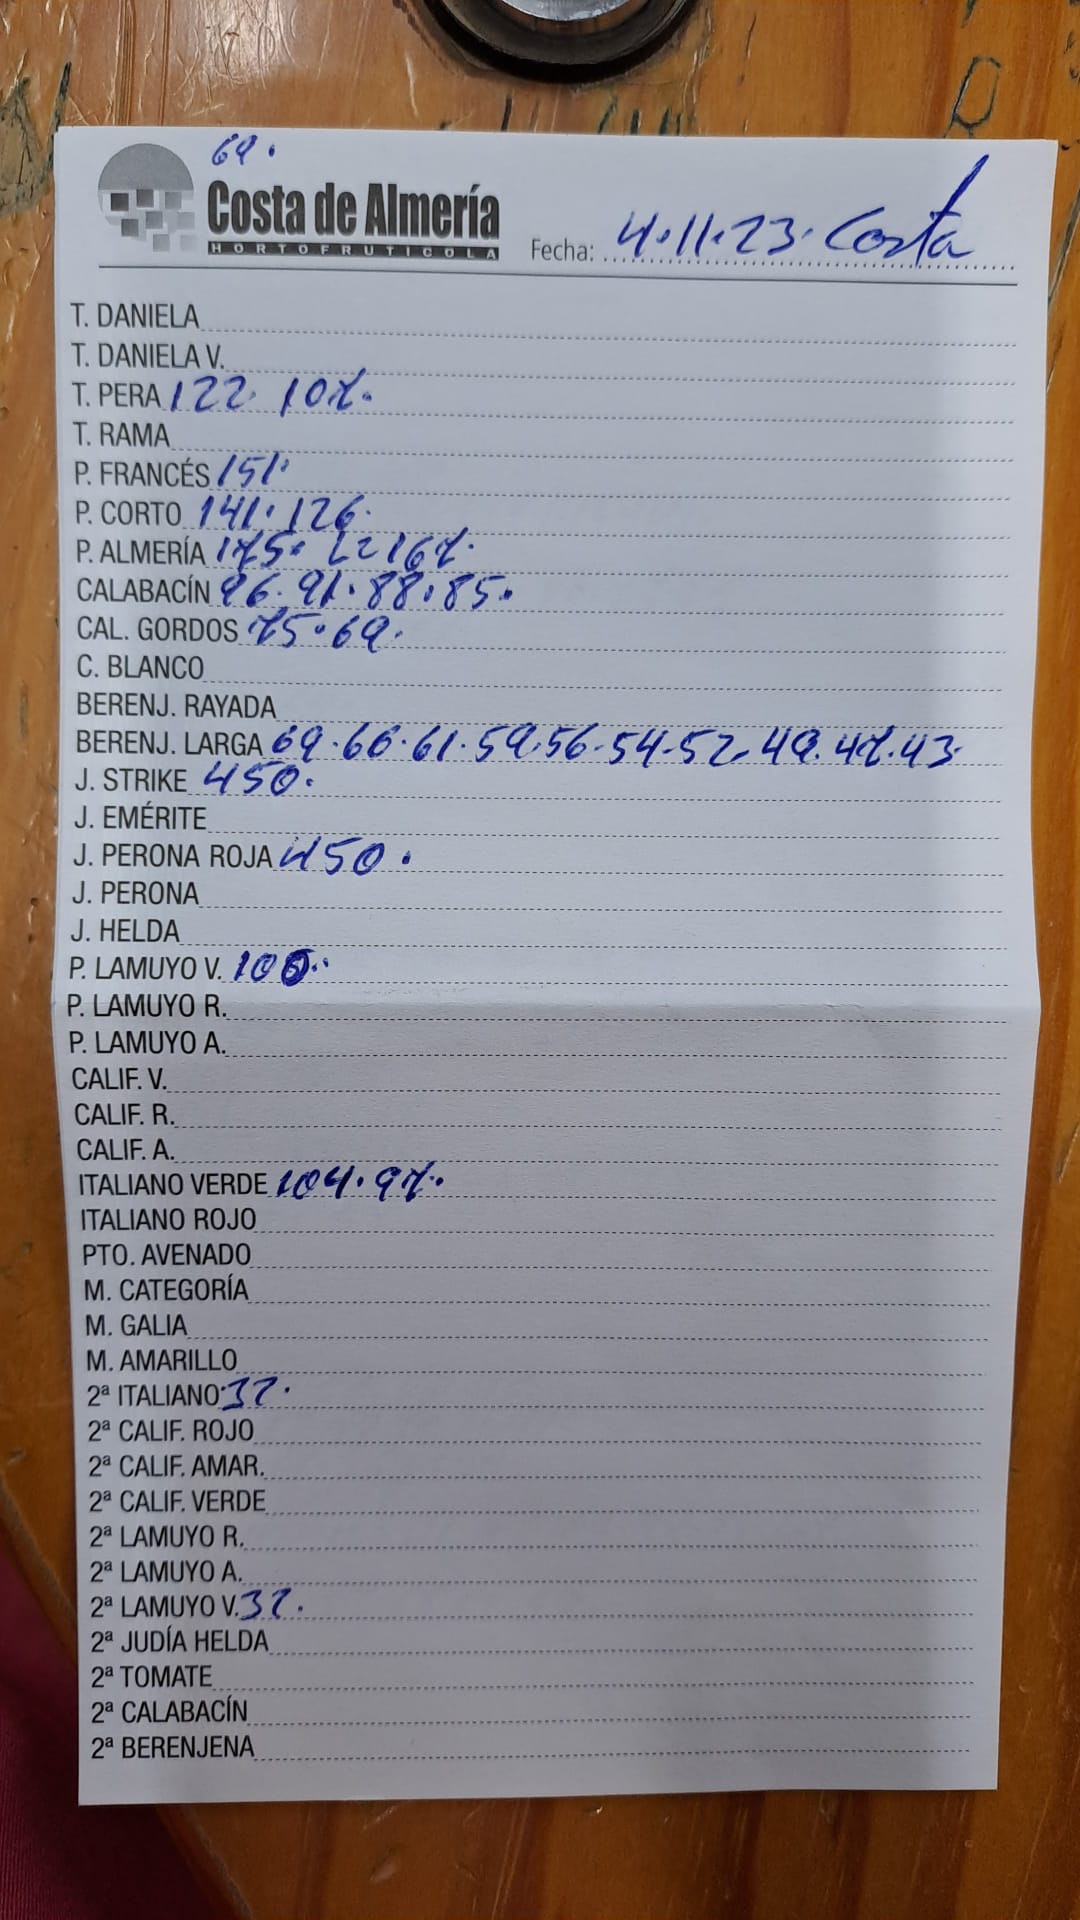 69.
Costa de Almería
HORTOFRUTICOLA
Fecha: 4.11.23. Costa
T. DANIELA
T. DANIELA V.
T. PERA 122. 107.
T. RAMA
P. FRANCÉS 151.
P. CORTO 141. 126.
P. ALMERÍA 175. 167.
CALABACÍN 96. 91. 88. 85.
CAL. GORDOS 75. 69.
C. BLANCO
BERENJ. RAYADA
BERENJ. LARGA 69. 66. 61. 59. 56. 54. 52. 49. 47. 43.
J. STRIKE 450.
J. EMÉRITE
J. PERONA ROJA 450.
J. PERONA
J. HELDA
P. LAMUYO V.
P. LAMUYO R.
P. LAMUYO A.
CALIF. V.
CALIF. R.
CALIF. A.
ITALIANO VERDE 104. 97.
ITALIANO ROJO
PTO. AVENADO
M. CATEGORÍA
M. GALIA
M. AMARILLO
2ª ITALIANO 32.
2ª CALIF. ROJO
2ª CALIF. AMAR.
2ª CALIF. VERDE
2ª LAMUYO R.
2ª LAMUYO A.
2ª LAMUYO V. 32.
2ª JUDÍA HELDA
2ª TOMATE
2ª CALABACÍN
2ª BERENJENA